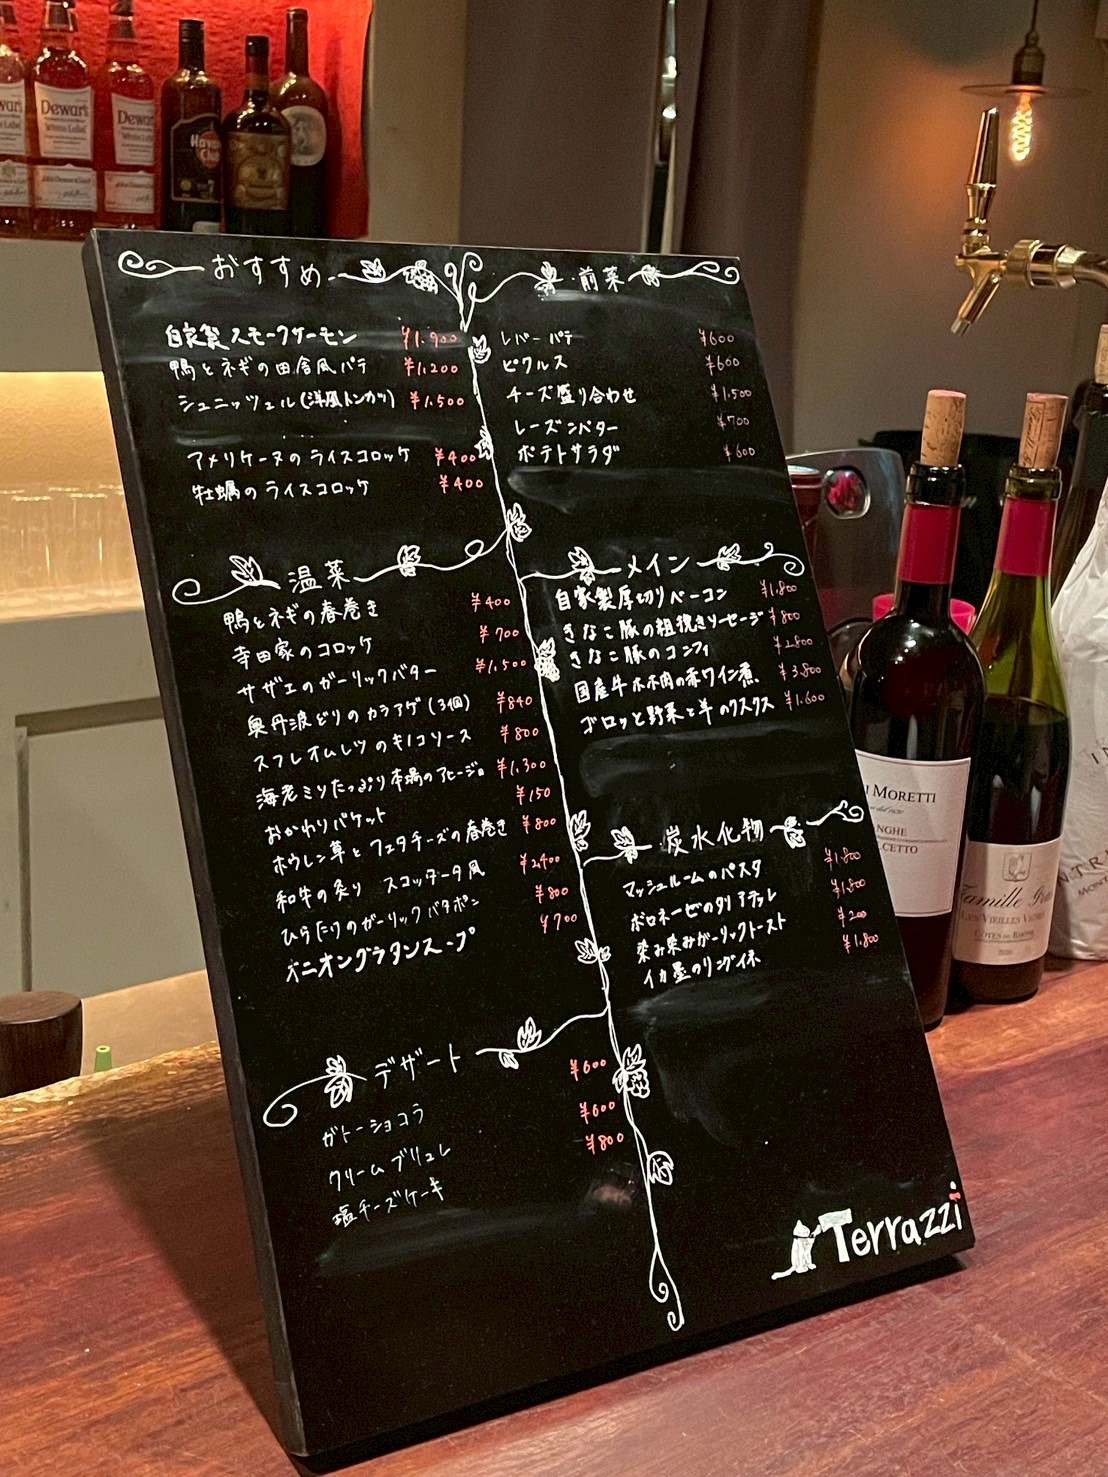 おすすめ
自家製スモークサーモン ¥1,900
鴨とネギの田舎風パテ ¥1,200
シュニッツェル(洋風トンカツ) ¥1,500
アメリケーヌのライスコロッケ ¥400
牡蠣のライスコロッケ ¥400
前菜
レバーパテ ¥600
ピクルス ¥600
チーズ盛り合わせ ¥1,500
レーズンバター ¥700
ポテトサラダ ¥600
温菜
鴨とネギの春巻き ¥400
寺田家のコロッケ ¥700
サザエのガーリックバター ¥1,500
奥丹波どりのカラアゲ(3個) ¥840
スフレオムレツのキノコソース ¥800
海老ミソたっぷり本場のアヒージョ ¥1,300
おかわりバケット ¥150
ホウレン草とフェタチーズの春巻き ¥800
和牛の炙り スコッタータ風 ¥2,400
ひらたけのガーリックバタポン ¥800
オニオングラタンスープ ¥700
メイン
自家製厚切りベーコン ¥1,800
きなこ豚の粗挽きソーセージ ¥800
きなこ豚のコンフィ ¥2,800
国産牛ホホ肉の赤ワイン煮 ¥3,800
ゴロッと野菜と羊のクスクス ¥1,600
炭水化物
マッシュルームのパスタ ¥1,800
ボロネーゼのタリアテッレ ¥1,800
染み染みガーリックトースト ¥200
イカ墨のリングイネ ¥1,800
デザート
ガトーショコラ ¥600
クリームブリュレ ¥600
塩チーズケーキ ¥800
Terrazzi
Dewar's
White Label
Dewar's
White Label
Havana
Club
MORETTI
DOLCETTO
Famille
LES VIEILLES VIGNES
CÔTES DU RHÔNE